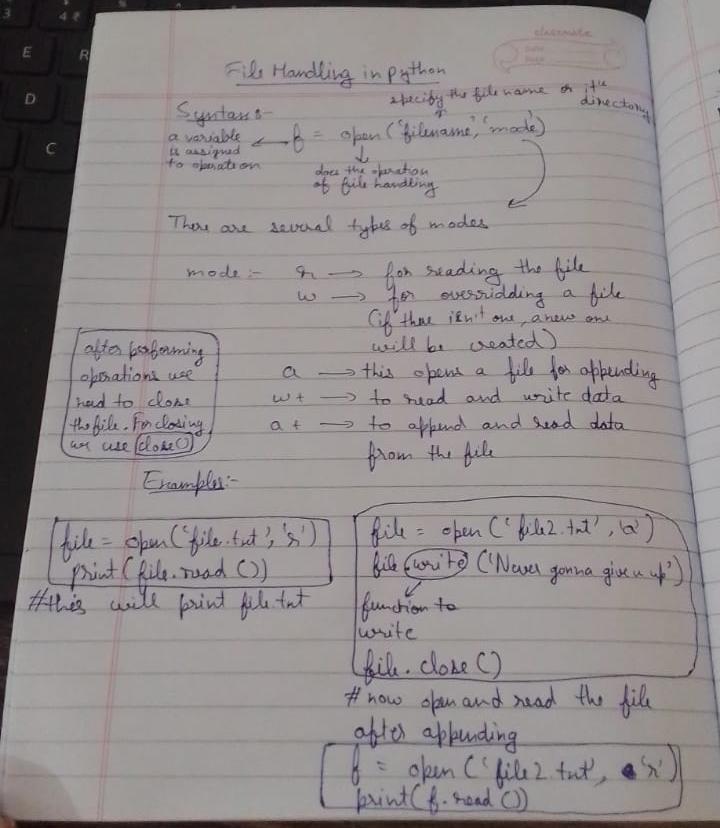 classmate
Date
Page
File Handling in python
Syntax :-
specify the file name or its
directory
f = open('filename', 'mode')
a variable
is assigned
to operation
does the operation
of file handling
There are several types of modes
mode :- r → for reading the file
w → for overridding a file
(if there isn't one, a new one
will be created)
a → this opens a file for appending
w+ → to read and write data
a+ → to append and read data
from the file
after performing
operations we
need to close
the file. For closing
we use close()
Examples:-
file = open('file.txt', 'r')
print(file.read())
#this will print file.txt
file = open('file2.txt', 'a')
file.write('Never gonna give u up')
function to
write
file.close()
# now open and read the file
after appending
f = open('file2.txt', 'r')
print(f.read())
4
E
R
D
C